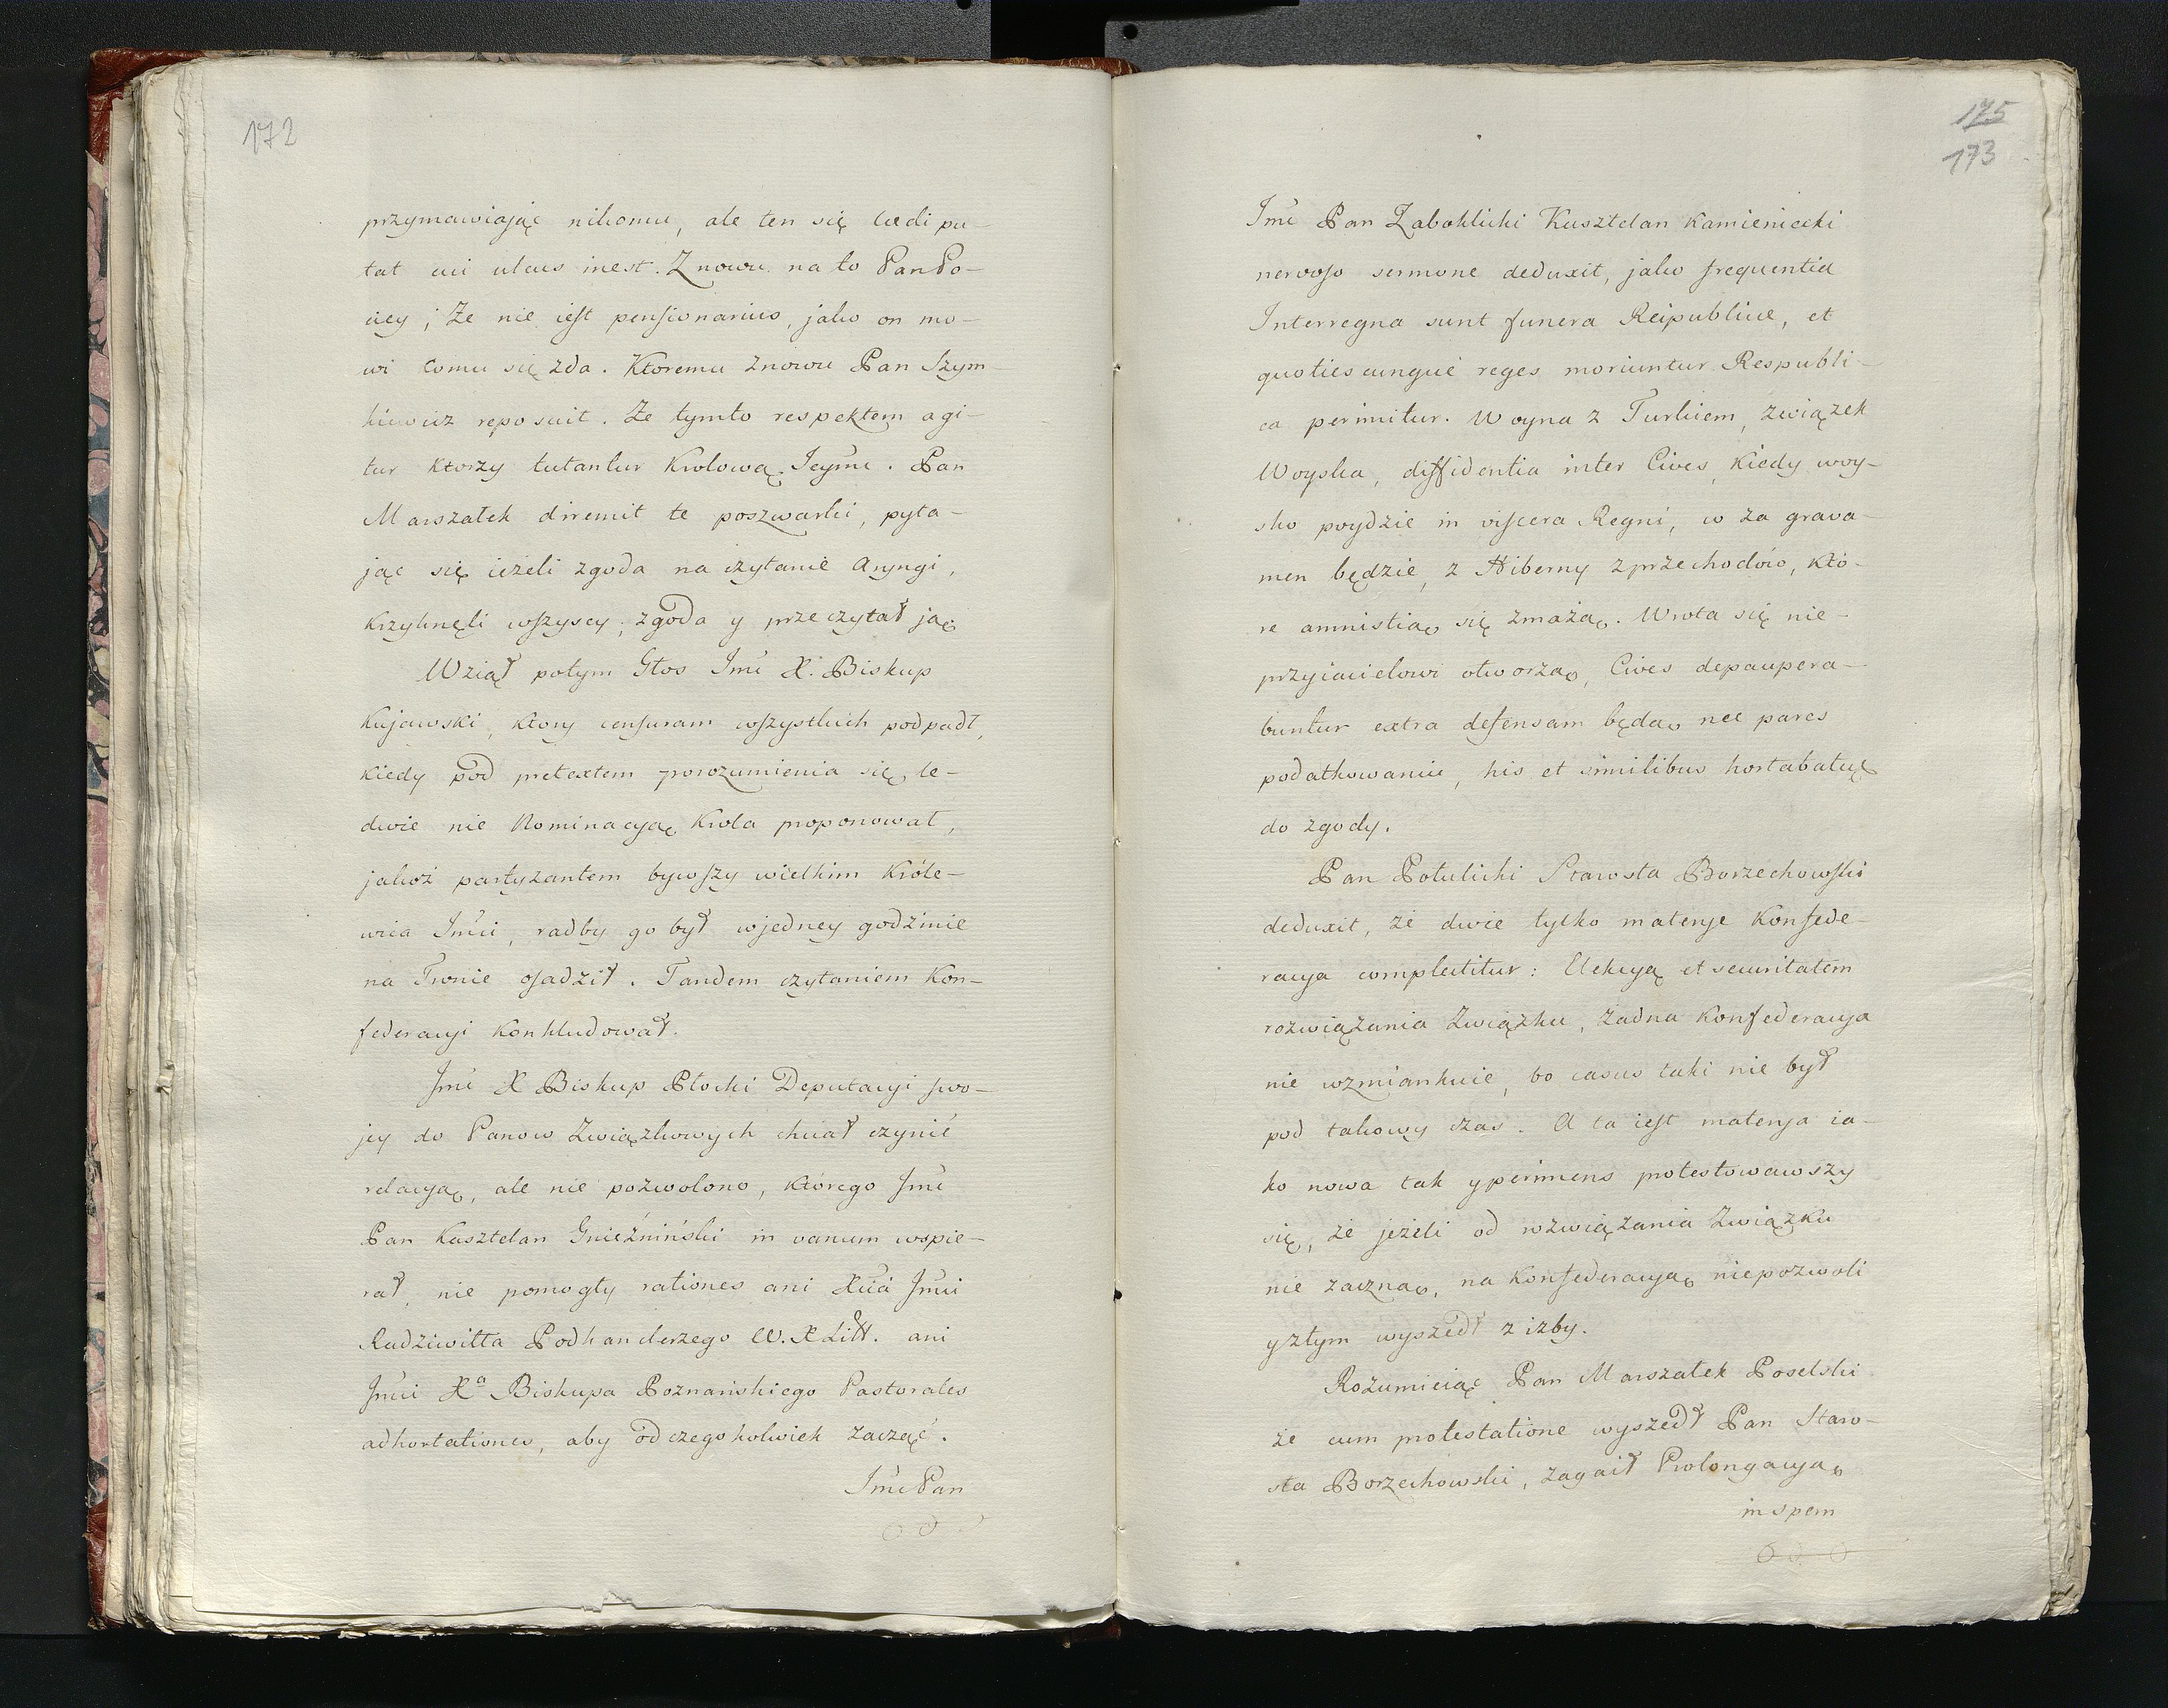 172
przymawiaiąc nikomu, ale ten się laedi pu-
tat cui ulcus inest. Znowu na to Pan Po-
ciey; Że nie iest pensionarius, jako on mo-
wi komu się zda. Ktoremu znowu Pan Szym-
kiewicz reposuit. Że tymto respektem agi-
tur ktorzy tutantur Krolową Jeymć. Pan
Marszałek diremit te poszwarki, pyta-
jąc się ieżeli zgoda na czytanie Aryngi,
krzyknęli wszyscy; zgoda y przeczytał ją
Wziął potym Głos Jmć X. Biskup
Kujawski, ktory censuram wszystkich podpadł,
kiedy pod pretextem porozumienia się le-
dwie nie Nominacyą Krola proponował,
jakoż partyzantem bywszy wielkim Króle-
wica Jmci, radby go był w jedney godzinie
na Tronie osadził. Tandem czytaniem Kon-
federacyi konkludował.
Jmć X Biskup Płocki Deputacyi swo-
jey do Panow Związkowych chciał czynić
relacyą, ale nie pozwolono, którego Jmć
Pan Kasztelan Gnieźniński in vanum wspie-
rał, nie pomogły rationes ani Xcia Jmci
Radziwiłła Podkanclerzego W. X Litt. ani
Jmci Xa Biskupa Poznańskiego Pastorales
adhortationes, aby od czegokolwiek zacząć.
Jmć Pan
175
173
Jmć Pan Zaboklicki Kasztelan Kamieniecki
nervoso sermone deduxit, jako frequentia
Interregna sunt funera Reipublicae, et
quotiescunque reges moriuntur Respubli-
ca perimitur. Woyna z Turkiem, związek
Woyska, diffidentia inter Cives, kiedy woy-
sko poydzie in viscera Regni, co za grava-
men będzie, z Hiberny z przechodów, któ-
re amnistią się zmażą. Wrota się nie-
przyiacielowi otworzą, Cives depaupera-
buntur extra defensam będą, nec pares
podatkowaniu, his et similibus hortabatur
do zgody.
Pan Potulicki Starosta Borzechowski
deduxit, że dwie tylko materye Konfede-
racya complectitur: Elekcyą et securitatem
rozwiązania Związku, żadna Konfederacya
nie wzmiankuie, bo casus taki nie był
pod takowy czas. A ta iest materya ia-
ko nowa tak y perimens protestowawszy
się, że jeżeli od rozwiązania Związku
nie zaczną, na Konfederacyą niepozwoli
y ztym wyszedł z izby.
Rozumieiąc Pan Marszałek Poselski
że cum protestatione wyszedł Pan Staro-
sta Borzechowski, zagaił Prolongacyą
in spem